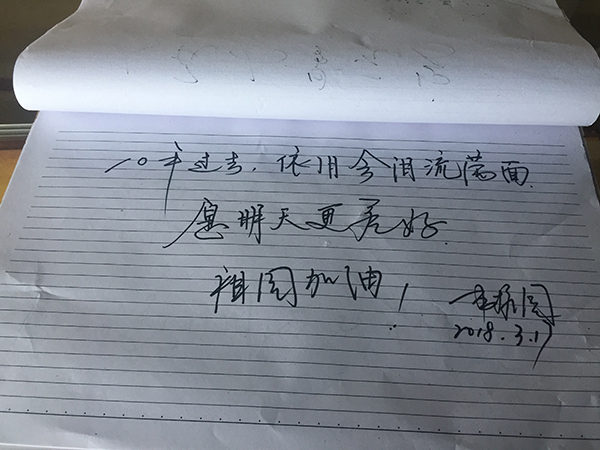 一〇年过去,依旧会泪流满面.
愿明天更美好.
祖国加油!
2018.3.17